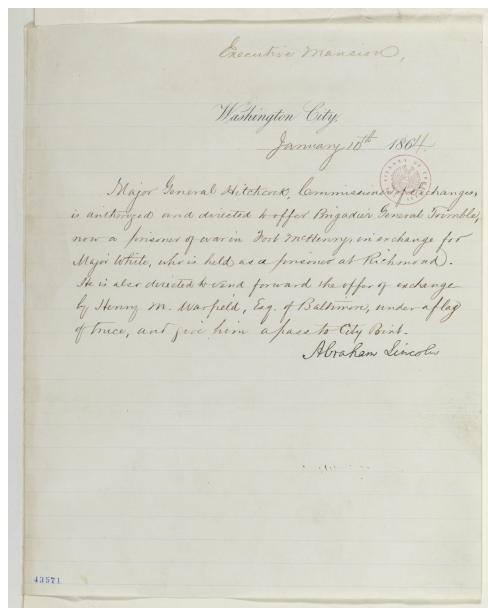 Executive Mansion,
Washington City,
January 18th 1864.
Major General Hitchcock, Commissioner of Exchanges,
is authorized and directed to offer Brigadier General Trimble,
now a prisoner of war in Fort McHenry, in exchange for
Major White, who is held as a prisoner at Richmond.
He is also directed to send forward the offer of exchange
by Henry M. Warfield, Esq. of Baltimore, under a flag
of truce, and give him a pass to City Point.
Abraham Lincoln
43571